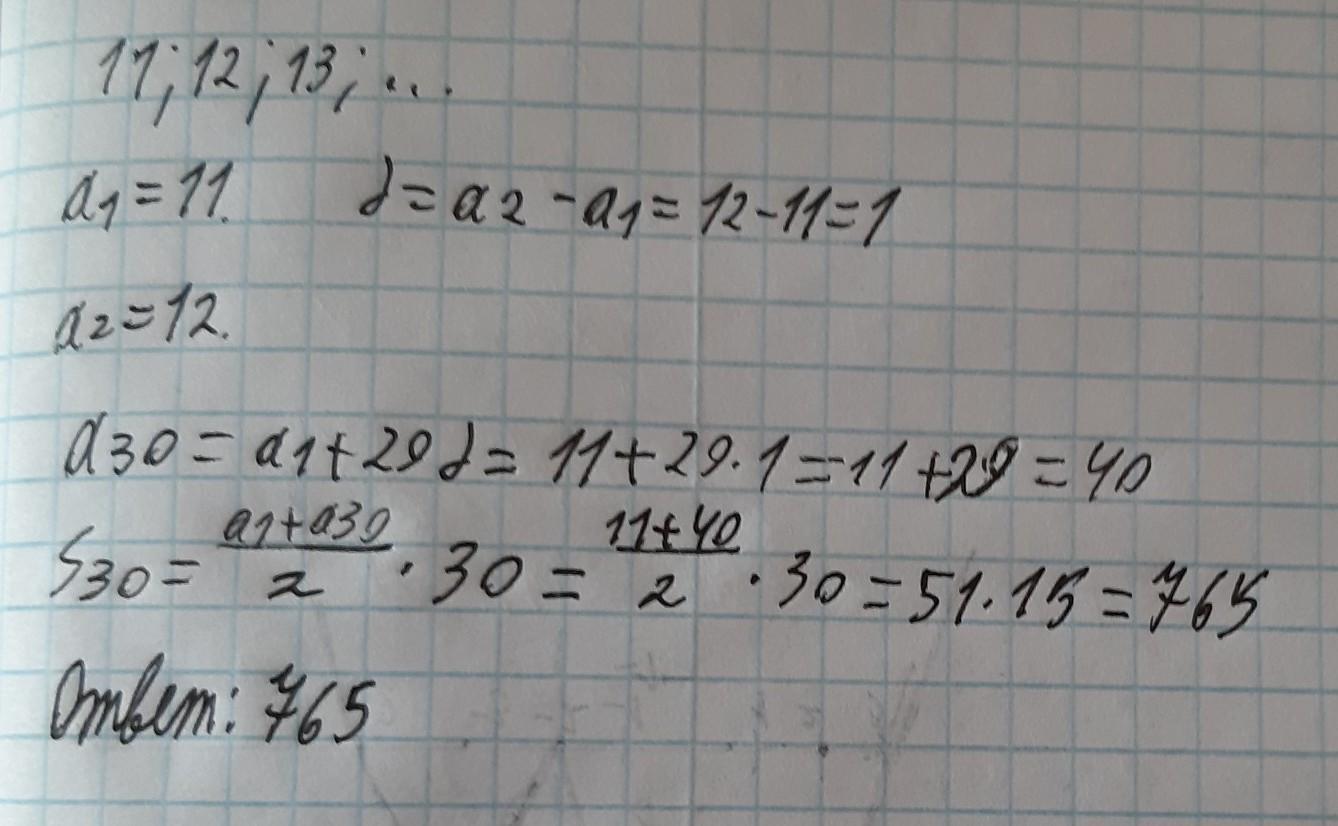 11; 12; 13; ...
a1 = 11. d = a2 - a1 = 12 - 11 = 1
a2 = 12.
a30 = a1 + 29d = 11 + 29 · 1 = 11 + 29 = 40
S30 = (a1 + a30)/2 · 30 = (11 + 40)/2 · 30 = 51 · 15 = 765
Ответ: 765